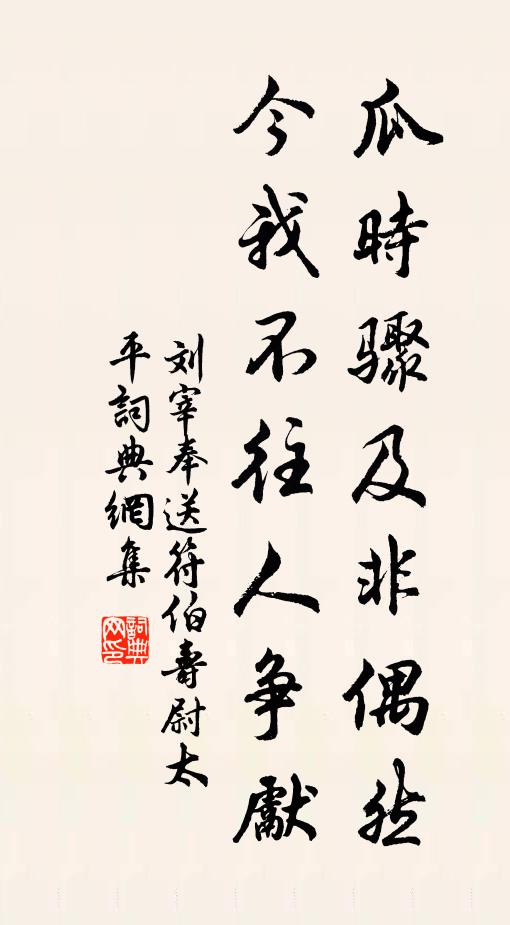 瓜時驟及非偶然
今我不往人争獻
刘宰奉送符伯壽尉太
平詞典網集
詞典
网印